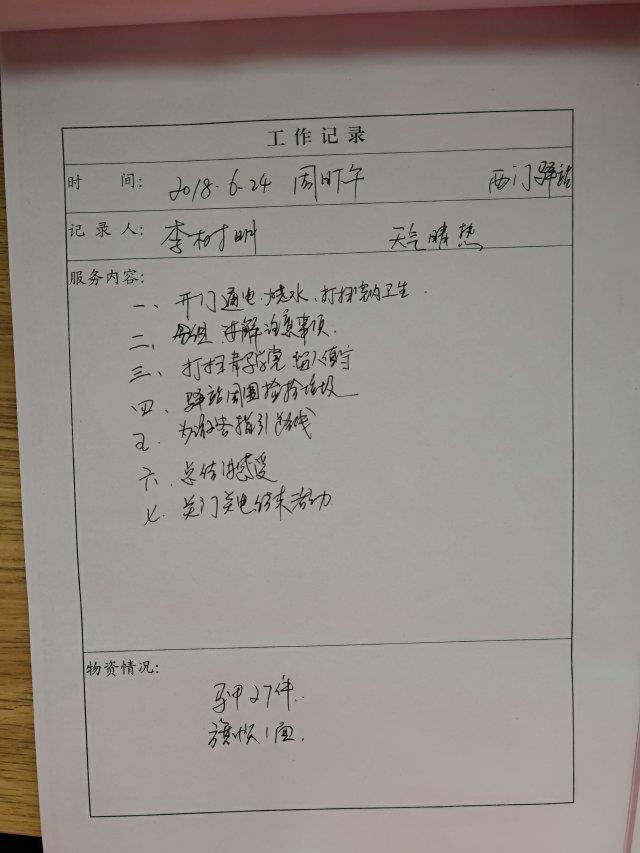 工作记录
时 间: 2018.6.24 周日下午 西门驿站
记录人: 李树明 天气晴热
服务内容:
一、开门通电.烧水、打扫室内卫生.
二、分组、讲解注意事项.
三、打扫 留人值守
四、驿站周围捡拾垃圾
五、为游客指引路线
六、总结讲感受
七、关门关电结束活动
物资情况:
马甲27件.
旗帜1面.